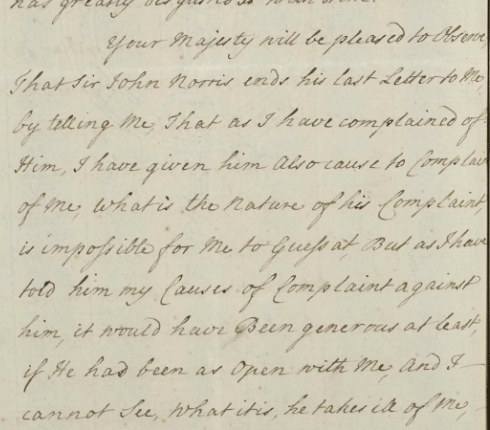 has greatly disgusted
Your Majesty will be pleased to Observe,
That Sir John Norris ends his last Letter to Me,
by telling Me, That as I have complained of
Him, I have given him Also cause to Complain
of Me, what is the Nature of his Complaint,
is impossible for Me to Guess at, But as I have
told him my Causes of Complaint against
him, it would have Been generous at least,
if He had been as Open with Me, And I
cannot See, what it is, he takes ill of Me,